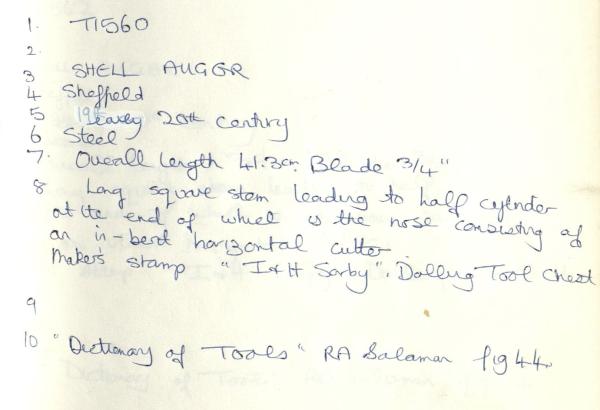 1. T1560
2.
3 SHELL AUGER
4 Sheffield
5 early 20th Century
6 Steel
7. Overall length 41.3cm Blade 3/4"
8 Long square stem leading to half cylinder
at the end of which is the nose consisting of
an in-bent horizontal cutter
Makers stamp "I & H Sorby". Dolling Tool Chest
9
10 "Dictionary of Tools" RA Salaman fig 44.